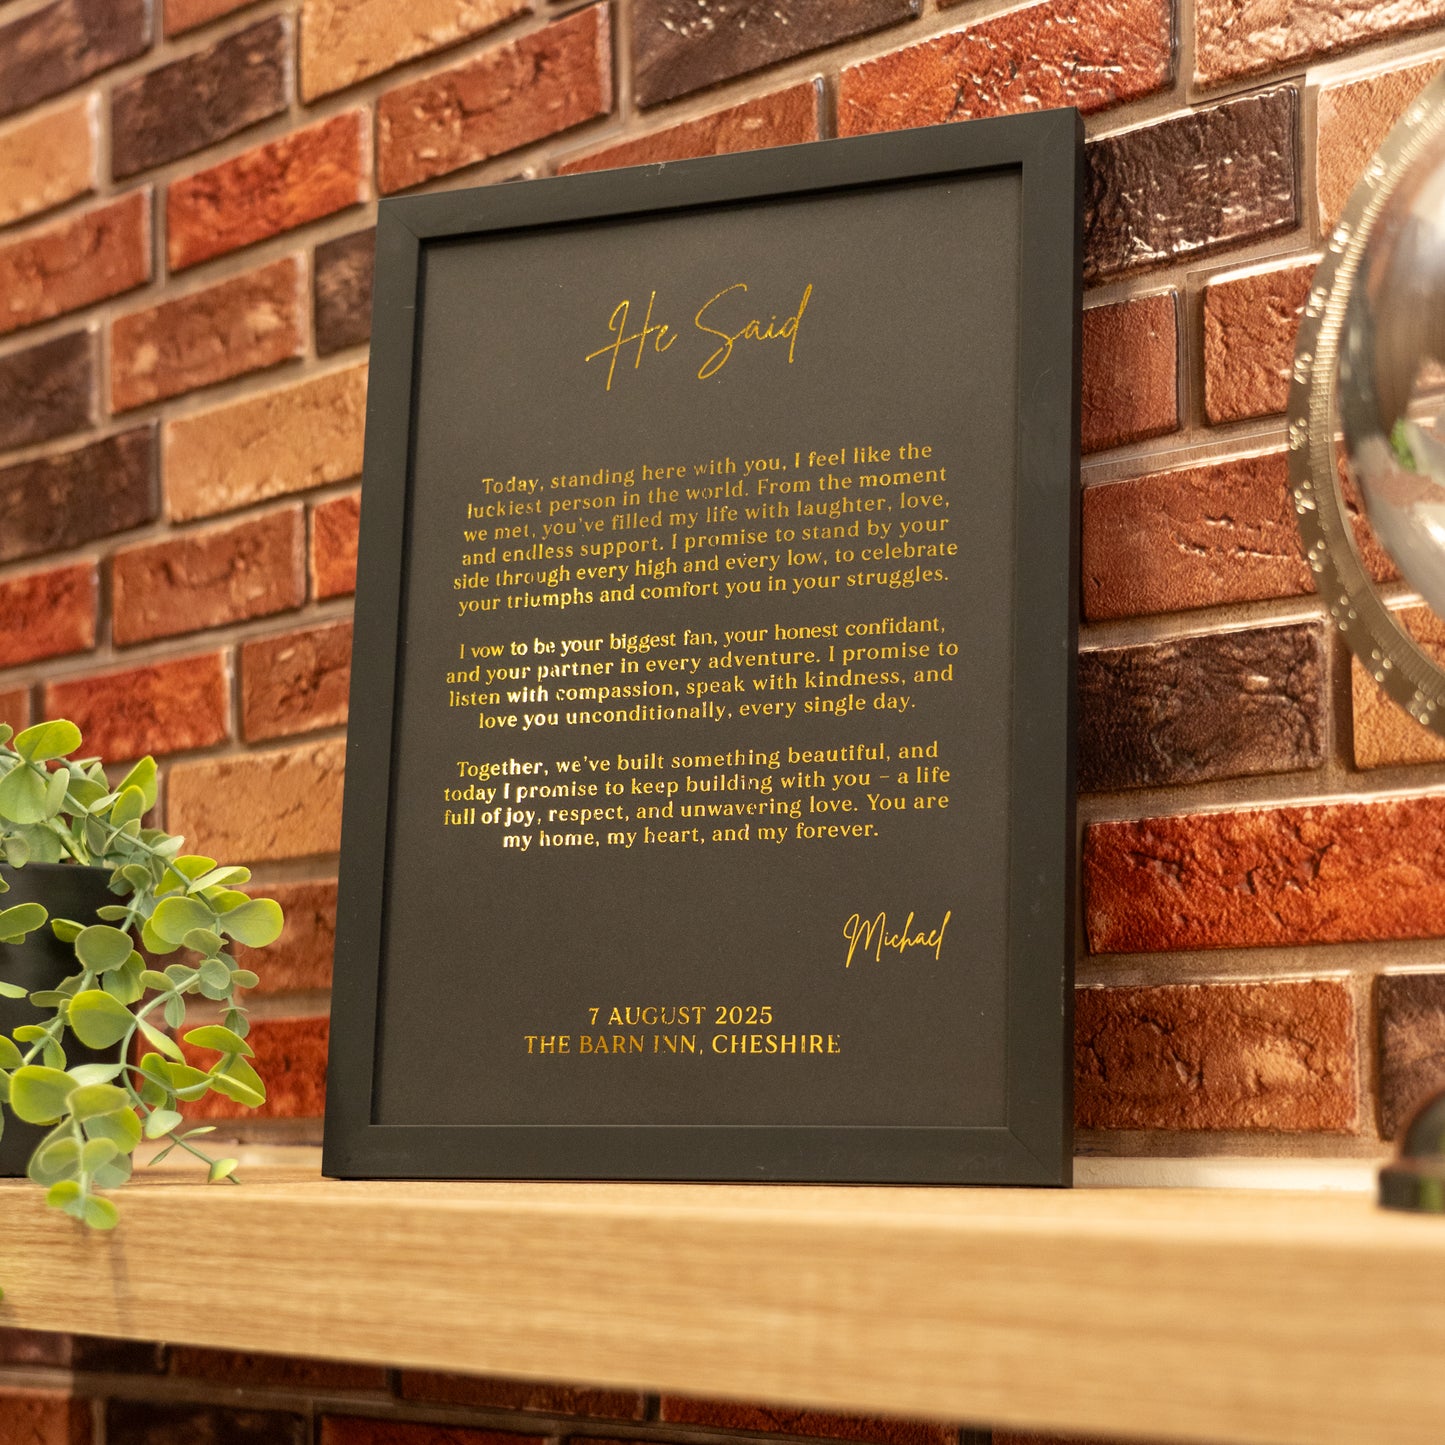 He Said
Today, standing here with you, I feel like the
luckiest person in the world. From the moment
we met, you've filled my life with laughter, love,
and endless support. I promise to stand by your
side through every high and every low, to celebrate
your triumphs and comfort you in your struggles.
I vow to be your biggest fan, your honest confidant,
and your partner in every adventure. I promise to
listen with compassion, speak with kindness, and
love you unconditionally, every single day.
Together, we've built something beautiful, and
today I promise to keep building with you – a life
full of joy, respect, and unwavering love. You are
my home, my heart, and my forever.
Michael
7 AUGUST 2025
THE BARN INN, CHESHIRE